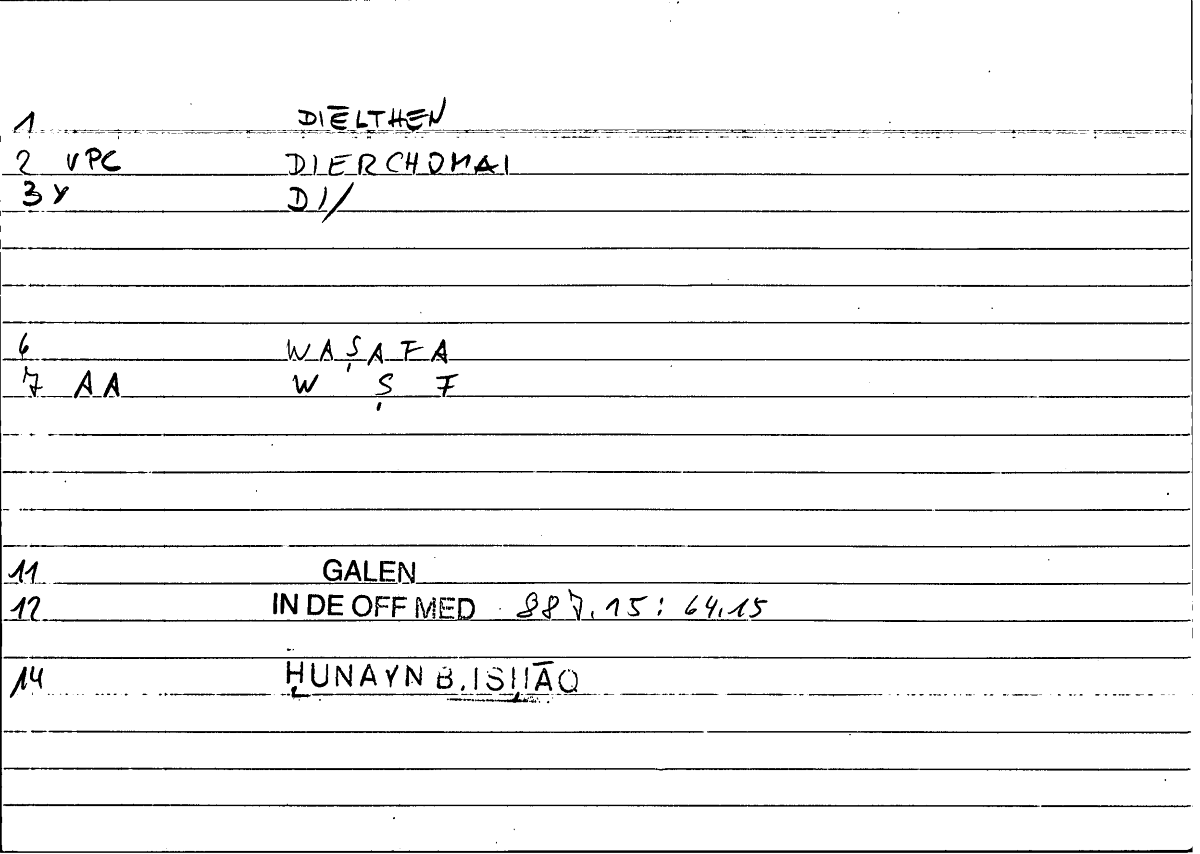 1 DIĒLTHEN
2 VPC DIERCHOMAI
3 Y DI/
6 WAṢAFA
7 AA W Ṣ F
11 GALEN
12 IN DE OFF MED 887.15: 64.15
14 ḤUNAYN B. ISḤĀQ